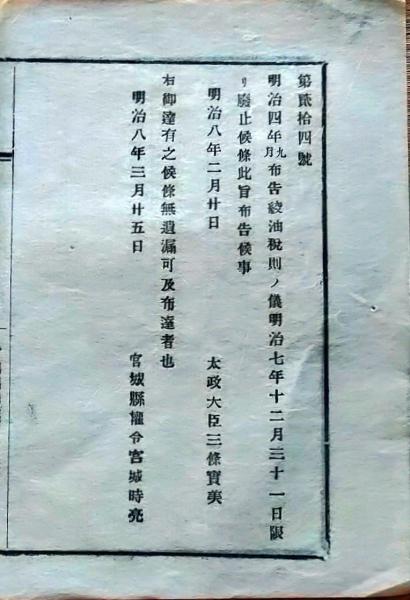 第貳拾四號
明治四年九月布告絞油税則ノ儀明治七年十二月三十一日限
リ廢止候條此旨布告候事
明治八年二月廿日
太政大臣三條實美
右御達有之候條無遺漏可及布達者也
明治八年三月廿五日
宮城縣權令宮城時亮